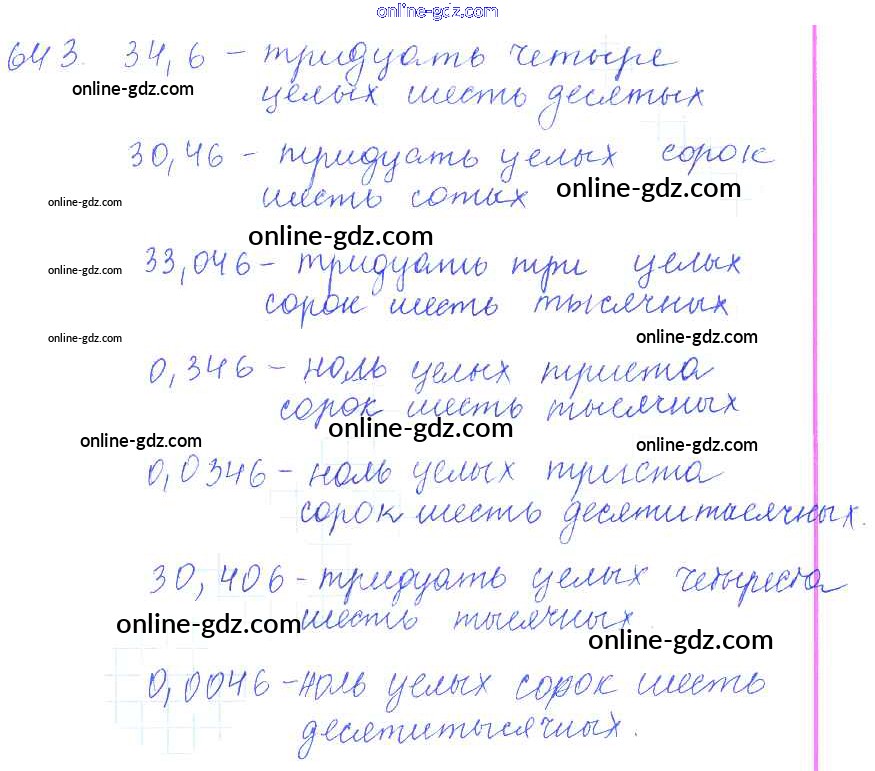 online-gdz.com
643. 34,6 – тридцать четыре
online-gdz.com
целых шесть десятых
30,46 – тридцать целых сорок
online-gdz.com
шесть сотых
online-gdz.com
online-gdz.com
33,046 – тридцать три целых
online-gdz.com
сорок шесть тысячных
online-gdz.com
online-gdz.com
0,346 – ноль целых триста
сорок шесть тысячных
online-gdz.com
online-gdz.com
online-gdz.com
0,0346 – ноль целых триста
сорок шесть десятитысячных.
30,406 – тридцать целых четыреста
online-gdz.com
шесть тысячных.
online-gdz.com
0,0046 – ноль целых сорок шесть
десятитысячных.